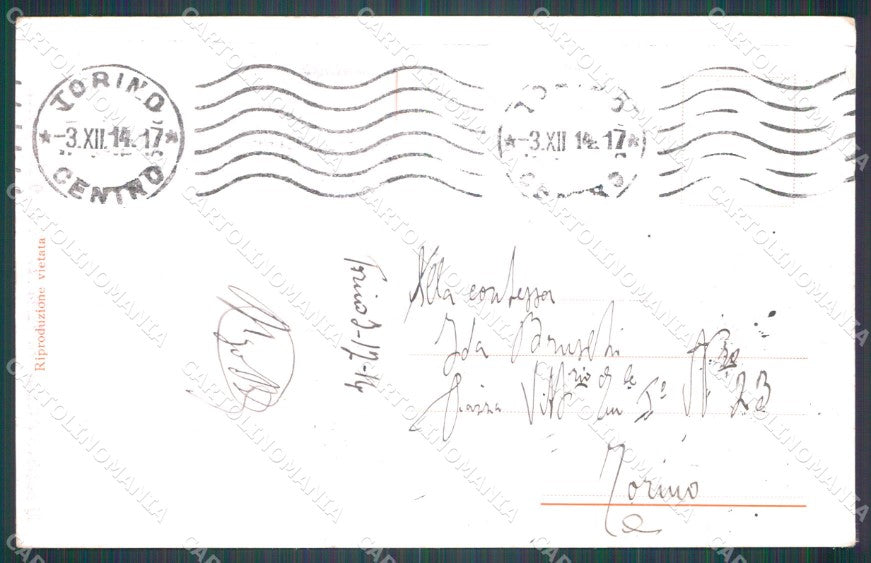 TORINO
-3.XII.14.17
CENTRO
-3.XII 14.17
Riproduzione vietata
Torino 3-12-14
Alla contessa
Ida Bruschi
Piazza Vitt.rio Em.le I° N.ro 23
Torino
CARTOLINOMANIA